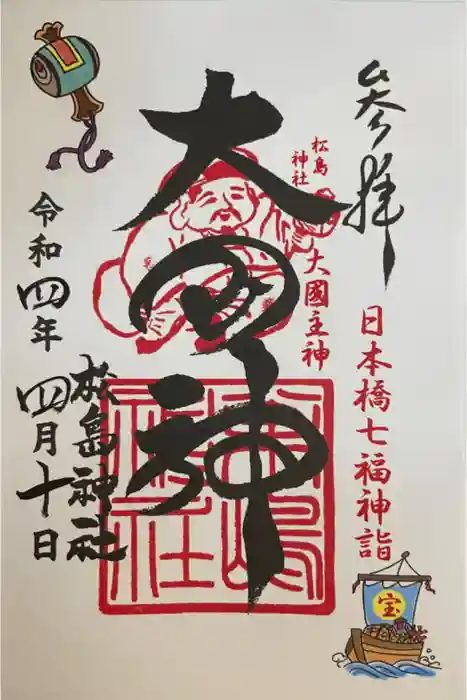 参拝
日本橋七福神詣
宝
松島
神社
大國主神
大国神
松島神社
松島神社
令和四年四月十日